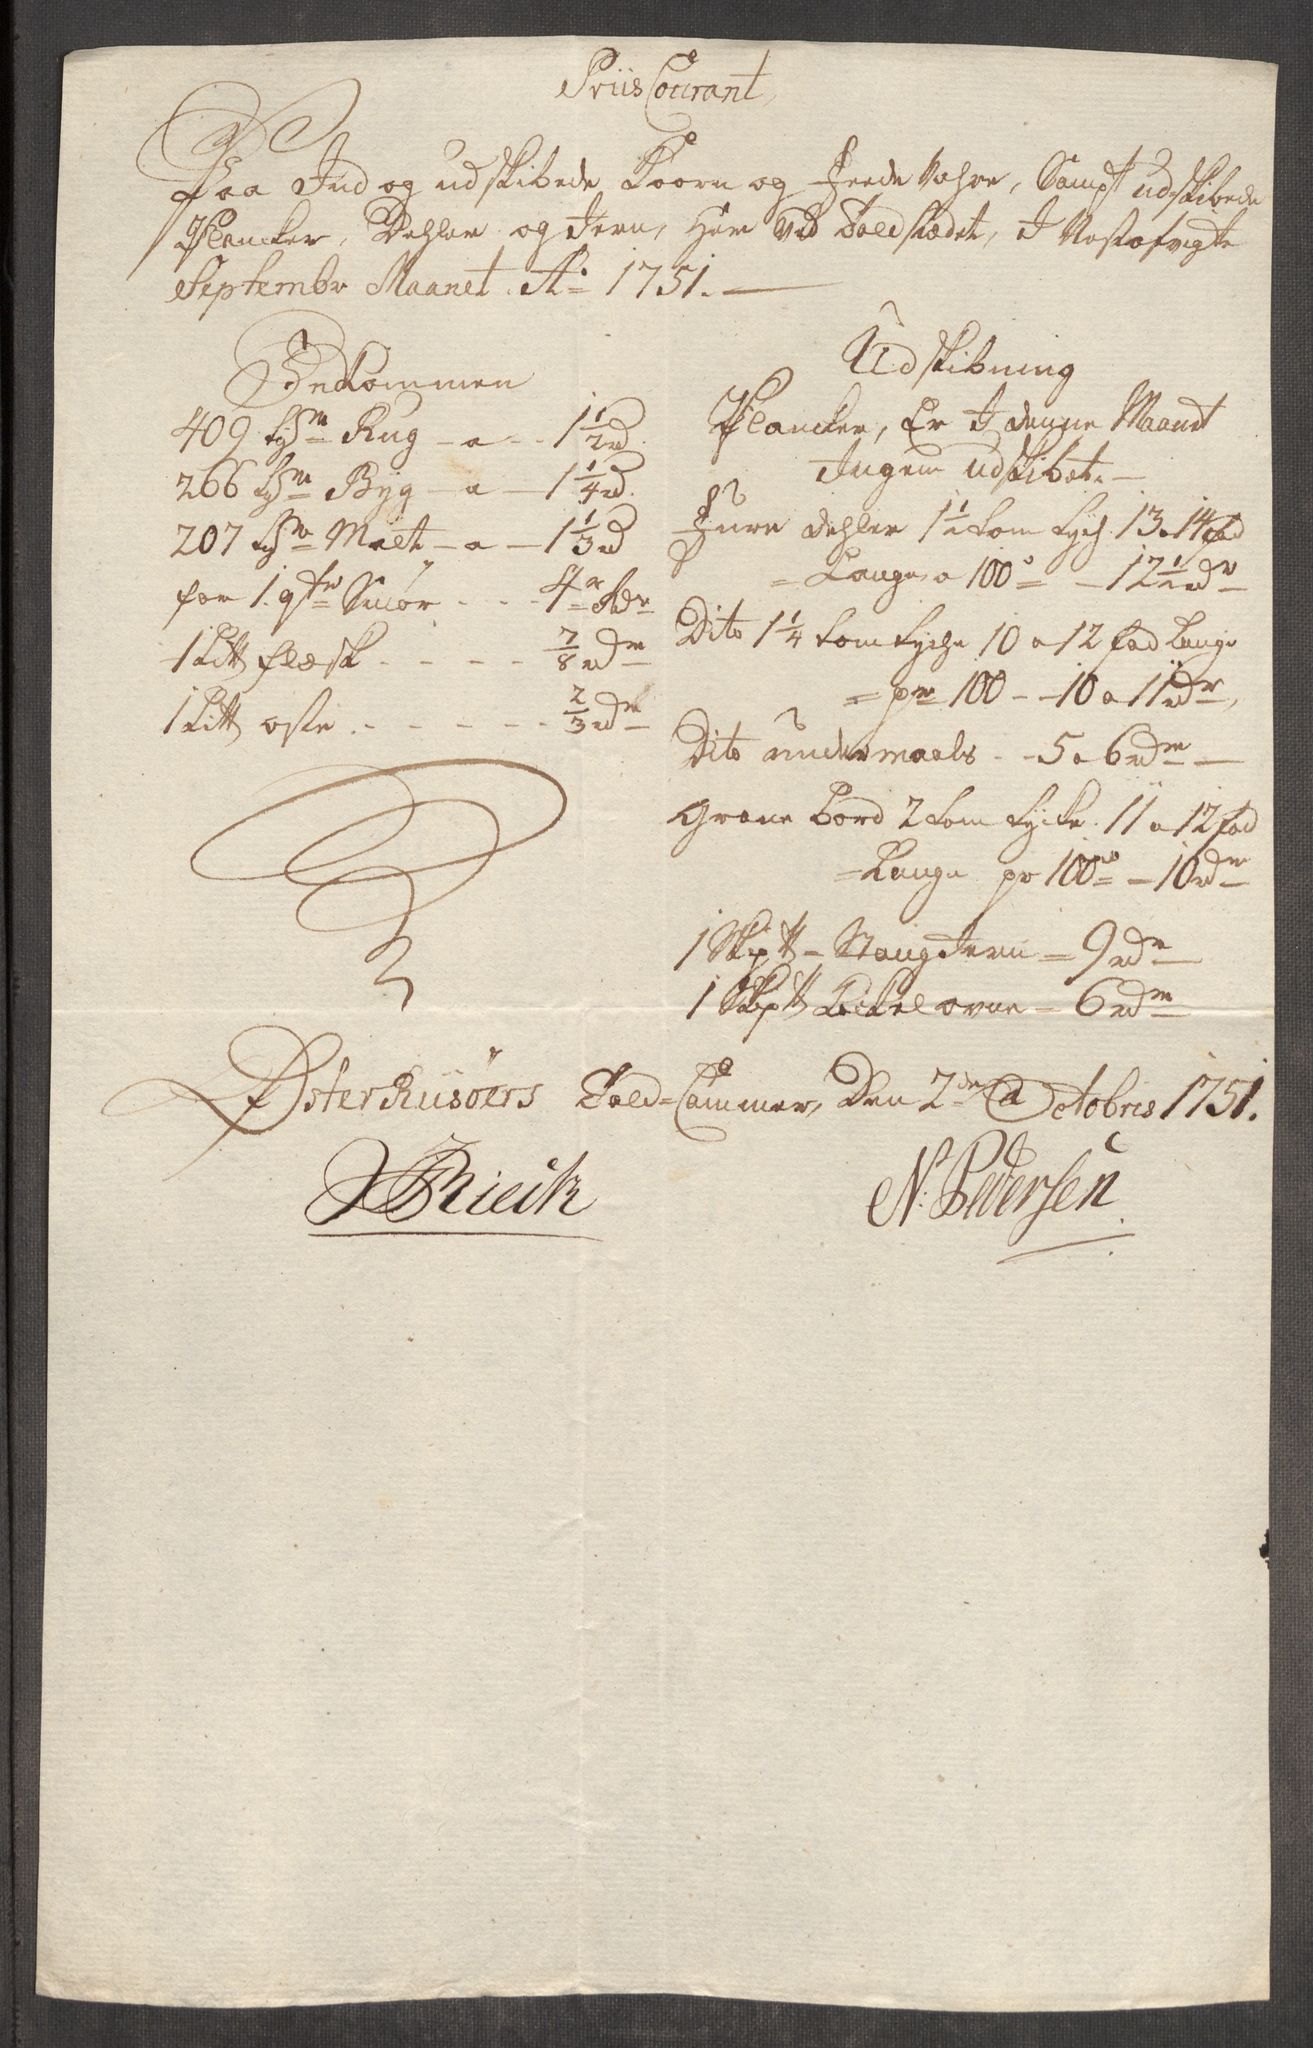 Priis Courant,
Paa Ind og udskibede Koorn og feede Vahre, Sampt udskibede
Plancker, Dehler og Jern, Her ved Toldstædet, I Nestafvigte
Septembr Maanet Ao 1751.
Indkommen
409 tdr Rug - a - 1 1/2 rd.
266 tdr Byg - a - 1 1/4 rd.
207 tdr Malt - a - 1 1/3 rd
for 1 Smør - - - 4 rdr
1 Litt flesk - - - - 7/8 rdr
1 Litt oste - - - - - 2/3 rdr
Udskibning
Plancker, Er I denne Maanet
Ingen udskibet. -
Fure dehler 1 1/2 tom tych 13 a 14 fod
Lange a 100 - 12 1/2 rdr
Dito 1 1/4 tom tyche 10 a 12 fod Lange
pr 100 - - 10 a 11 rdr,
Dito undermaals - - 5 a 6 rdr
Grane Bord 2 tom tycke 11 a 12 fod
Lange pr 100 - 10 rdr
1 Skp℔ - Stang Jern = 9 rdr
1 Skp℔ Kakelovne = 6 rdr
ØsterRiisöers Told-Cammer, Den 2den Octobris 1751.
N: Pedersen